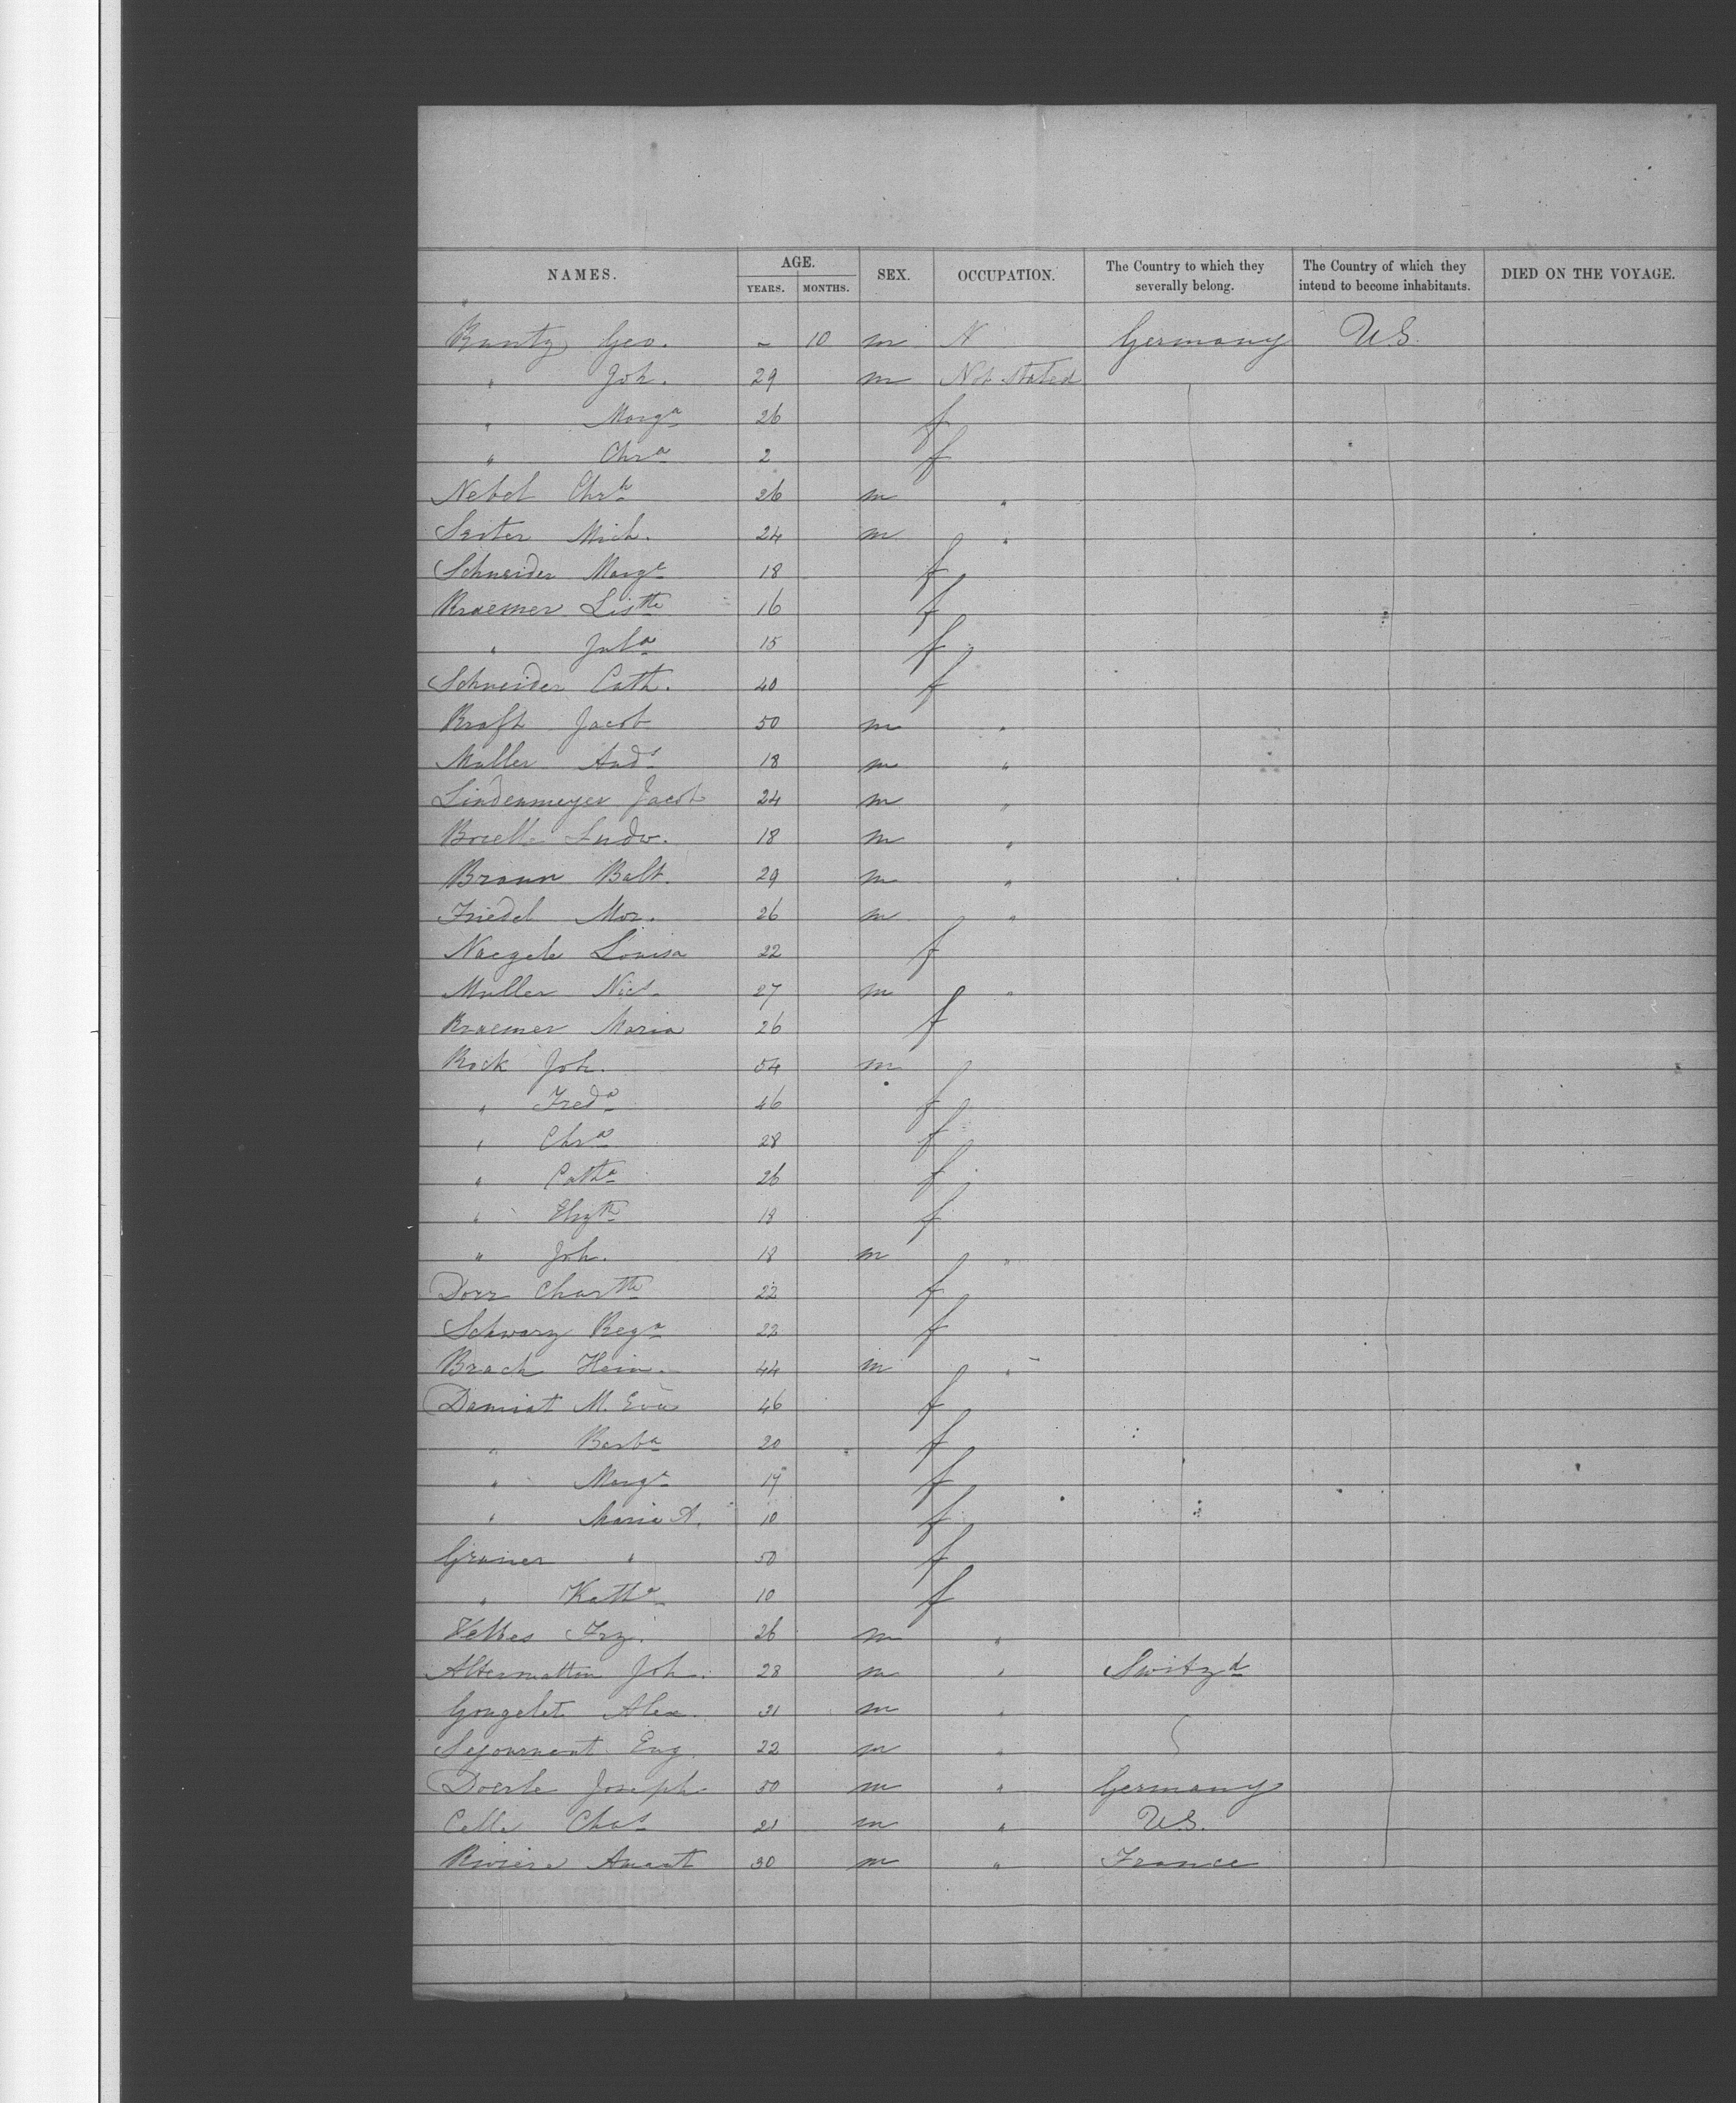 NAMES. AGE. YEARS. MONTHS. SEX. OCCUPATION. The Country to which they severally belong. The Country of which they intend to become inhabitants. DIED ON THE VOYAGE.
Geo. - 10 m N Germany U.S.
" Joh. 29 m Not stated
" Marga 26 f
" Chra 2 f
Nebel Chrh 26 m "
Mich. 24 m "
Schneider Marge 18 f
Kraemer Listte 16 f
" Jula 15 f
Schneider Cath. 40 f
Kraft Jacob 50 m "
Muller Ands 18 m "
Lindenmeyer Jacob 24 m "
Ludw. 18 m "
Braun Balt. 29 m "
Friedel Mor. 26 m "
Naegele Louisa 22 f
Muller Nics 27 m "
Kraemer Maria 26 f
Rock Joh. 54 m
" Freda 46 f
" Chra 28 f
" Catha 26 f
" Elizth 18 f
" Joh. 18 m "
Dorr Chartte 22 f
Schwarz Rega 22 f
Brach Hein. 44 m "
Damiat M. Eva 46 f
" Barba 20 f
" Marge 17 f
" Maria A. 10 f
" 50 f
" Katha 10 f
Frz. 26 m "
Altermatten Joh. 28 m " Switzd
Gougelet Alex. 31 m "
Sejournant Eug. 22 m "
Doerle Joseph 50 m " Germany
Chas 21 m " U.S.
Riviere Amant 30 m " France